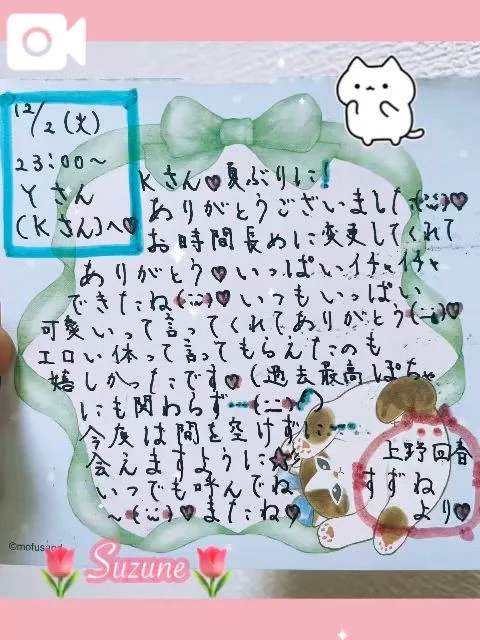 12/2(火)
23:00〜
Yさん
(Kさん)へ♡
Kさん♡夏ぶりに!
ありがとうございました(¨̮)♡
お時間長めに変更してくれて
ありがとう♡いっぱいイチャイチャ
できたね(¨̮)♡いつもいっぱい
可愛いって言ってくれてありがとう(¨̮)♡
エロい体って言ってもらえたのも
嬉しかったです♡(過去最高ぽちゃ
にも関わらず…(¨̮)
今度は間を空けずに…
会えますように★
いつでも呼んでね
〜(¨̮)♡またね♡
上野回春
すずね
より♡
©mofusand
Suzune